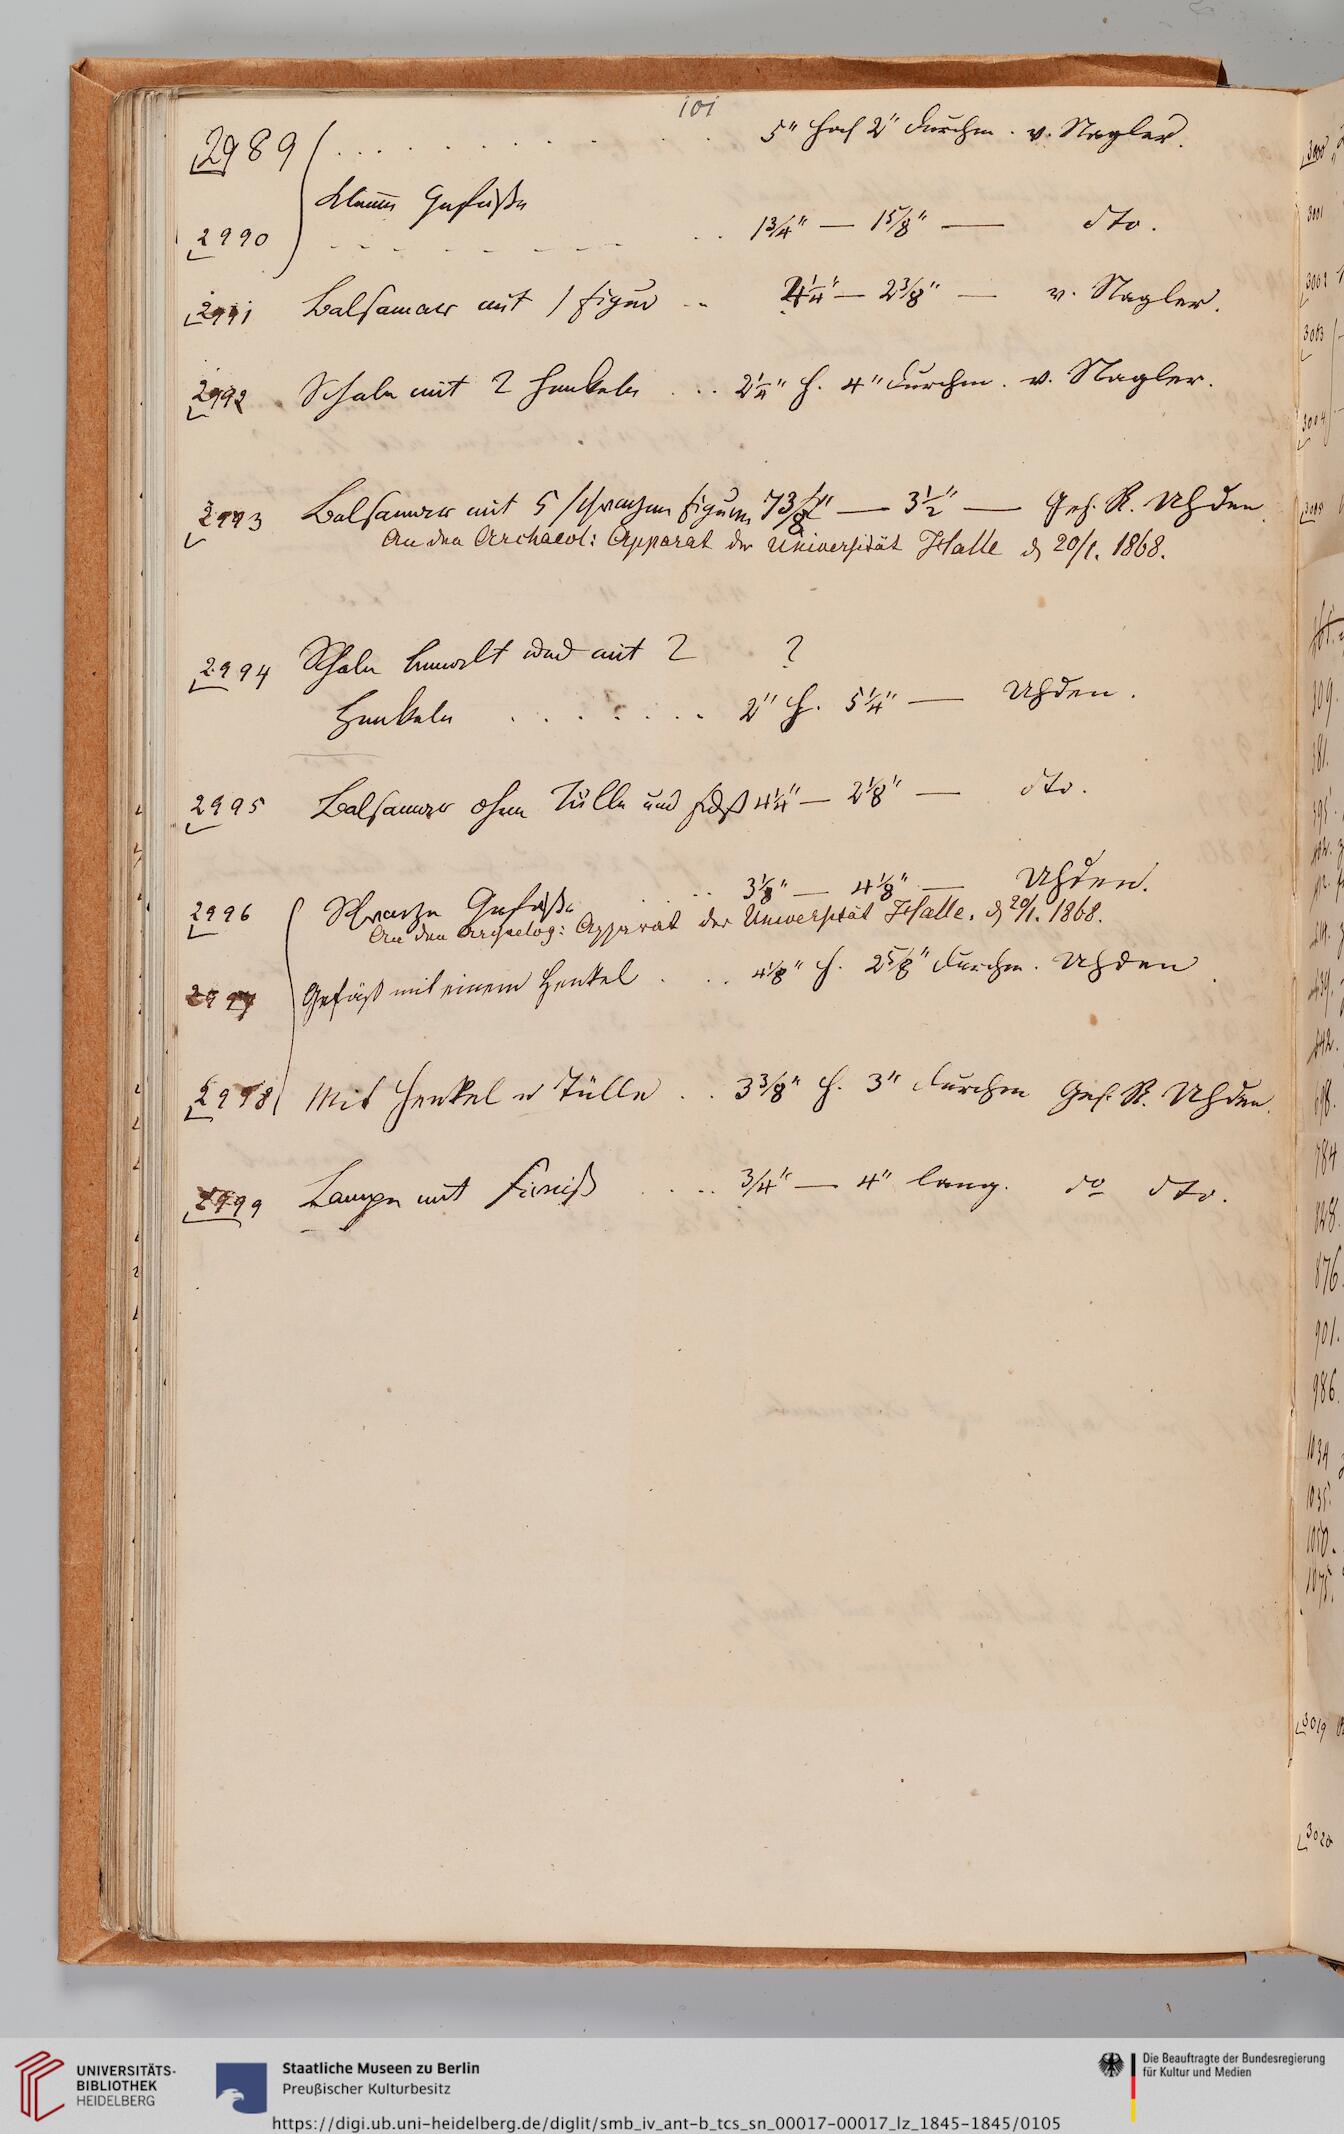 101
2989 . . . . . . . . . . 5" hoch 2" Durchm. v. Nagler.
Kleine Gefäße
2990 - - - - - - - - . . 1¾" — 1⅝" — dto.
2991 Balsamar mit 1 Figur . . 4¼" — 2⅜" — v. Nagler.
2992 Schale mit 2 Henkeln . . . 2¼" h. 4" Durchm. v. Nagler.
2993 Balsamar mit 5 schwarzen Figuren 7⅜" — 3½" — Geh. R. Uhden
An den Archaeol: Apparat der Universität Halle d 20/1. 1868.
2994 Schale bemalt und mit 2 ?
Henkeln . . . . . . . 2" h. 5¼" — Uhden.
2995 Balsamar ohne Tülle und Fuß 4¼" — 2⅛" — dto.
2996 Schwarze Gefäße . . . . 3⅛" — 4⅛" — Uhden.
An den Archaeolog: Apparat der Universität Halle. d 20/1. 1868.
2997 Gefäß mit einem Henkel . . . 4⅛" h. 2⅝" Durchm. Uhden
2998 Mit Henkel u Tülle . . 3⅜" h. 3" Durchm Geh. R. Uhden.
2999 Lampe mit Firniß . . . . ¾" — 4" lang. do dto.
3000
3001
3002
3003
3004
309.
381.
784
848.
876.
901.
986.
1034
1035.
1050.
1075.
3019
3020
UNIVERSITÄTS-
BIBLIOTHEK
HEIDELBERG
Staatliche Museen zu Berlin
Preußischer Kulturbesitz
Die Beauftragte der Bundesregierung
für Kultur und Medien
https://digi.ub.uni-heidelberg.de/diglit/smb_iv_ant-b_tcs_sn_00017-00017_lz_1845-1845/0105